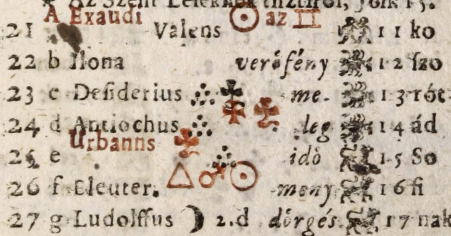 Az Szent Léleknek ... Joh 15.
A Exaudi ☉ az ♊
21 Valens 11 ko
22 b Ilona verőfény 12 szo
23 c Desiderius me- 13 rót
24 d Antiochus leg 14 ád
Urbanns
25 e idő 15 So
26 f Eleuter. △ ♂ ☉ meny 16 fi
27 g Ludolffus ☽ 2.d dörgés 17 nak